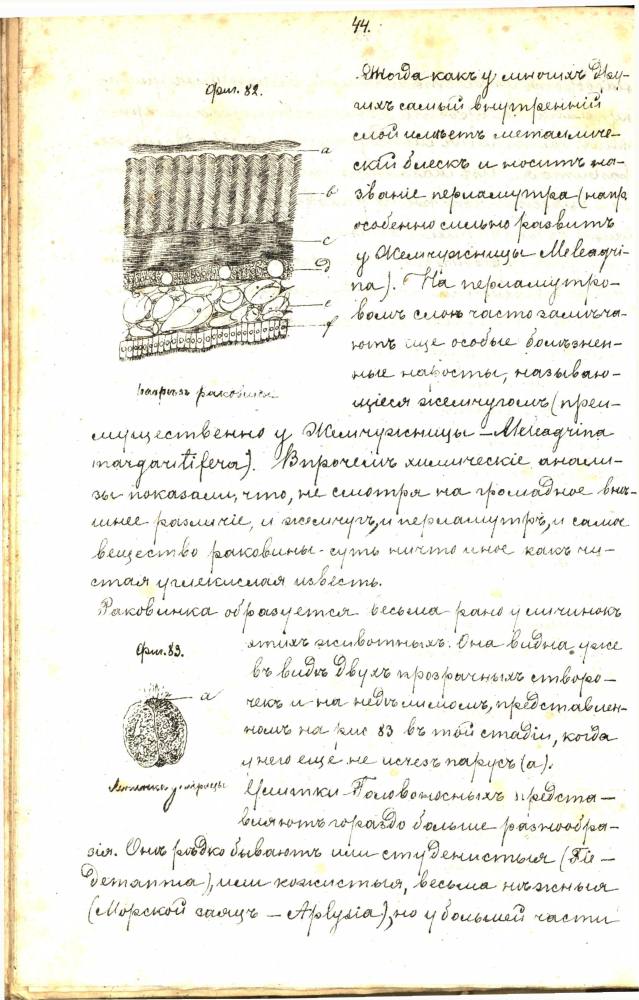 44.
Фиг. 82.
Тогда какъ у многихъ дру-
гихъ самый внутренній
слой имѣетъ металличе-
скій блескъ и носитъ на-
званіе перламутра (напр.
особенно сильно развитъ
у Жемчужницы Meleagri-
na). На перламутро-
вомъ слоѣ часто замѣча-
ютъ еще особые болѣзнен-
ные наросты, называю-
щіеся жемчугомъ (преи-
a
b
c
d
e
f
раковины
мущественно у Жемчужницы – Meleagrina
margaritifera). Впрочемъ химическіе анали-
зы показали, что, не смотря на громадное внѣ-
шнее различіе, и жемчугъ, и перламутръ, и самое
вещество раковины - суть ничто иное какъ чи-
стая углекислая известь.
Раковинка образуется весьма рано у личинокъ
Фиг. 83.
a
устрицы
этихъ животныхъ. Она видна уже
въ видѣ двухъ прозрачныхъ створо-
чекъ и на недѣлимомъ, представлен-
номъ на рис 83 въ той стадіи, когда
у него ещё не исчезъ парусъ (а).
Улитки Головоносныхъ предста-
вляютъ гораздо больше разнообра-
зія. Онѣ рѣдко бываютъ или студенистыя (Tie-
demannia), или кожистыя, весьма нѣжныя
(Морской заяцъ – Aplysia), но у большей части